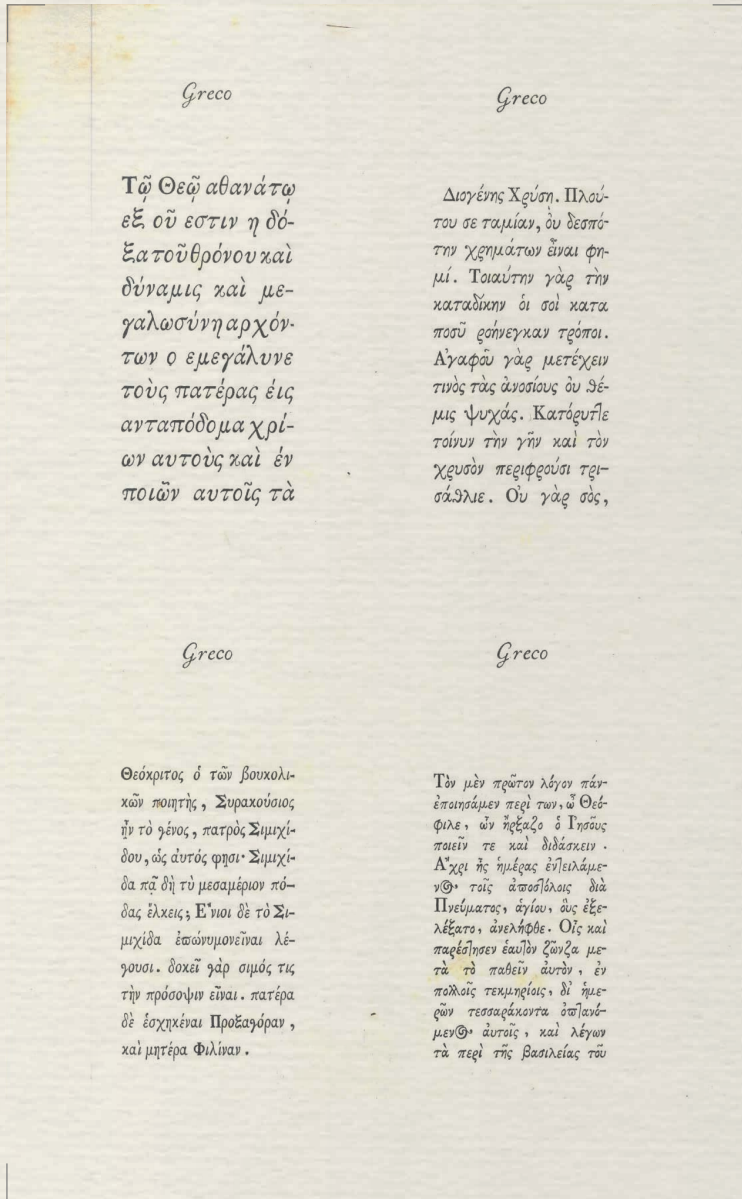 Greco
Τῷ Θεῷ αθανάτῳ
εξ οῦ εστιν η δό-
ξα τοῦ θρόνου καὶ
δύναμις καὶ με-
γαλωσύνη αρχόν-
των ο εμεγάλυνε
τοὺς πατέρας έις
ανταπόδομα χρί-
ων αυτοὺς καὶ έν
ποιῶν αυτοῖς τὰ
Greco
Διογένης Χρύση. Πλού-
του σε ταμίαν, ὀυ δεσπό-
την χρημάτων εἶναι φη-
μί. Τοιαύτην γὰρ τὴν
καταδίκην ὁι σοὶ κατα
ποσῦ ροήνεγκαν τρόποι.
Αγ̓αφοῦ γὰρ μετέχειν
τινὸς τὰς ἀνοσίους ὀυ θέ-
μις ψυχάς. Κατόρυτῖε
τοίνυν τὴν γῆν καὶ τὸν
χρυσὸν περιφροῦσι τρι-
σάθλιε. Οὐ γὰρ σὸς,
Greco
Θεόκριτος ὁ τῶν βουκολι-
κῶν ποιητὴς, Συρακούσιος
ἦν τὸ γένος, πατρὸς Σιμιχί-
δου, ὡς ἀυτός φησι· Σιμιχί-
δα πᾷ δὴ τὺ μεσαμέριον πό-
δας ἕλκεις; Ε῎νιοι δὲ τὸ Σι-
μιχίδα ἐπώνυμον εἶναι λέ-
γουσι. δοκεῖ γὰρ σιμός τις
τὴν πρόσοψιν εἶναι. πατέρα
δὲ ἐσχηκέναι Προξαγόραν,
καὶ μητέρα Φιλίναν.
Greco
Τὸν μὲν πρῶτον λόγον πάν-
ἐποιησάμεν περὶ των, ὦ Θεό-
φιλε, ὧν ἤρξαζο ὁ Γησοῦς
ποιεῖν τε καὶ διδάσκειν.
Α῎χρι ἧς ἡμέρας ἐντειλάμε-
νος τοῖς ἀποστόλοις διὰ
Πνεύματος, ἁγίου, ὃυς ἐξε-
λέξατο, ἀνελήφθε. Οἷς καὶ
παρέστησεν ἑαυτὸν ζῶνζα με-
τὰ τὸ παθεῖν αὐτὸν, ἐν
πολλοῖς τεκμηρίοις, δἰ ἡμε-
ρῶν τεσσαράκοντα ὀπτανό-
μενος αὐτοῖς, καὶ λέγων
τὰ περὶ τῆς βασιλείας τοῦ